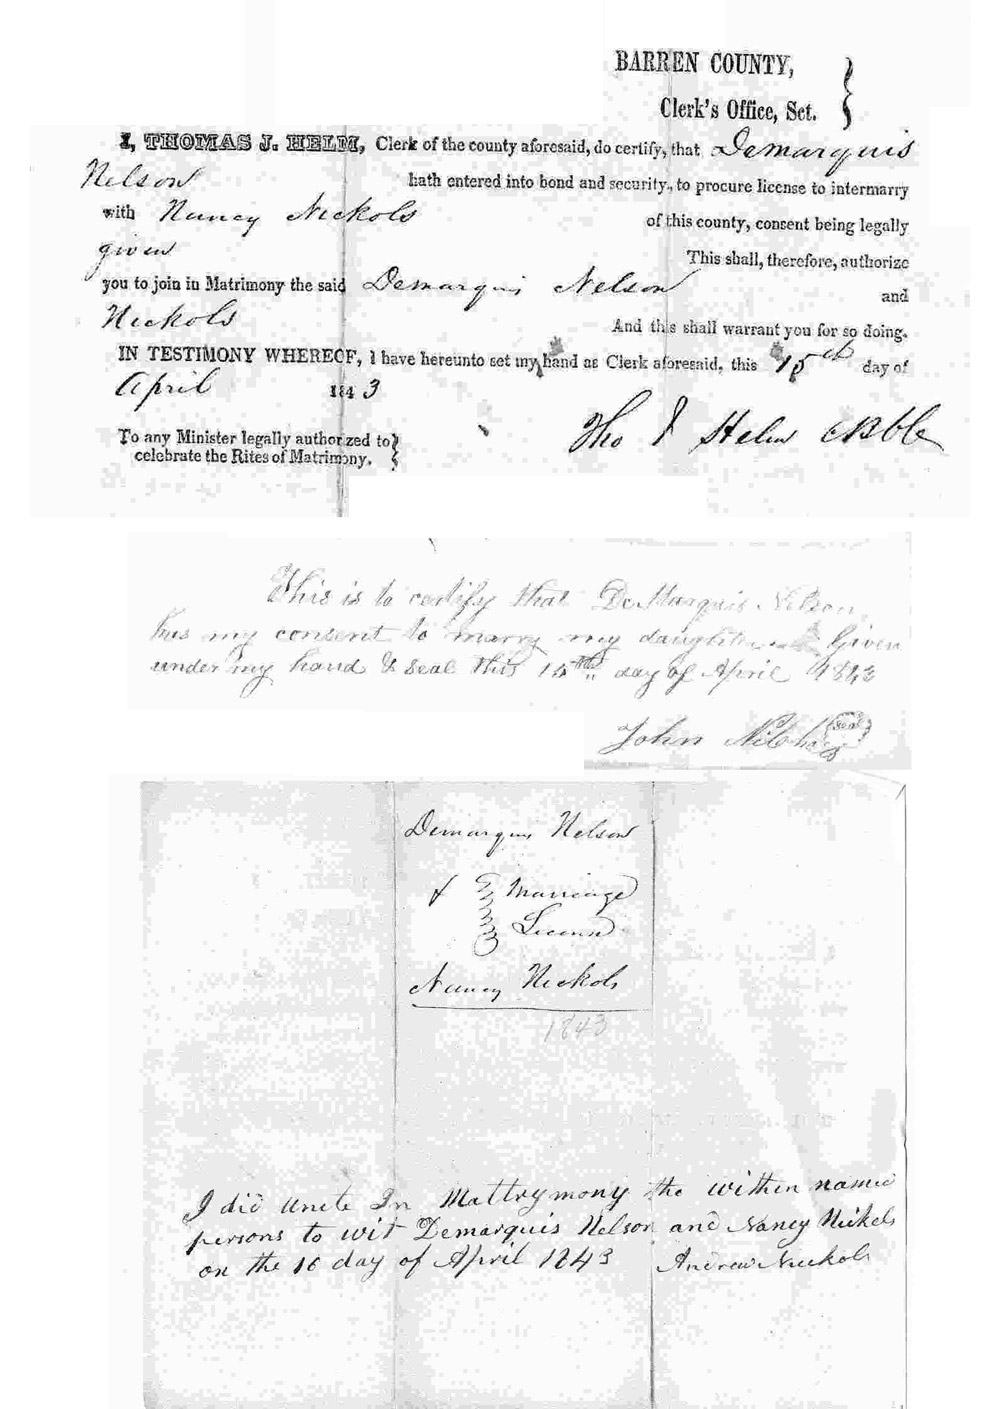 BARREN COUNTY,
Clerk's Office, Sct.
I, THOMAS J. HELM, Clerk of the county aforesaid, do certify, that Demarquis
Nelson hath entered into bond and security, to procure license to intermarry
with Nancy Nickols of this county, consent being legally
given This shall, therefore, authorize
you to join in Matrimony the said Demarquis Nelson and
Nickols And this shall warrant you for so doing.
IN TESTIMONY WHEREOF, I have hereunto set my hand as Clerk aforesaid, this 15th day of
April 1843
To any Minister legally authorized to
celebrate the Rites of Matrimony.
Tho J Helm
This is to certify that DeMarquis Nelson
has my consent to marry my daughter Given
under my hand & seal this 15th day of April 1843
John Seal
Demarquis Nelson
& Marriage
License
Nancy Nickols
1843
I did unete In Mattrymony the within named
persons to wit Demarquis Nelson and Nancy Nickels
on the 16 day of April 1843 Andrew Nuckols